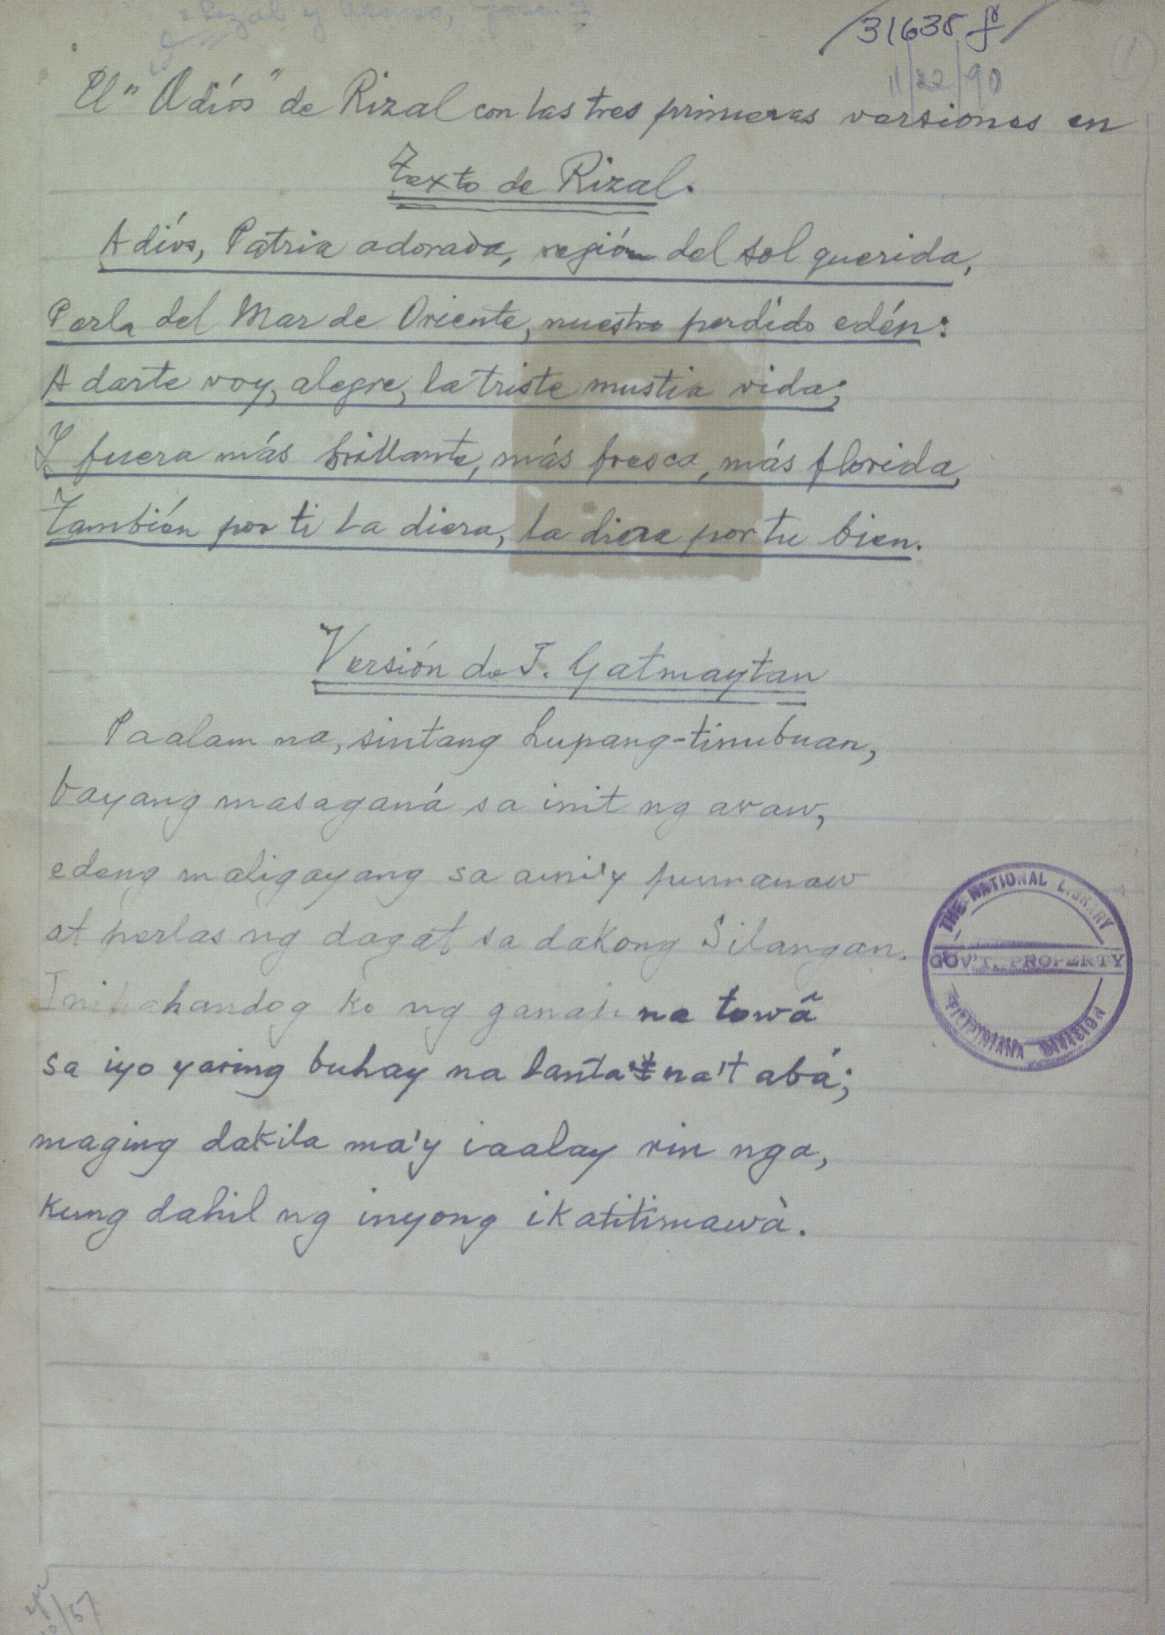 Rizal y Alonso, José
31638 f
11/22/90
El "Adiós" de Rizal con las tres primeras versiones en
Texto de Rizal.
Adiós, Patria adorada, región del sol querida,
Perla del Mar de Oriente, nuestro perdido edén:
A darte voy, alegre, la triste mustia vida;
Y fuera más brillante, más fresca, más florida,
También por ti la diera, la diera por tu bien.
Versión de J. Gatmaytan
Paalam na, sintang Lupang-tinubuan,
bayang masaganá sa init ng araw,
edeng maligayang sa ami'y pumanaw
at perlas ng dagat sa dakong Silangan.
Inihahandog ko ng ganap na towâ
sa iyo yaring buhay na lanta na't abá;
maging dakila ma'y iaalay rin nga,
kung dahil ng inyong ikatitimawà.
THE NATIONAL LIBRARY
GOV'T. PROPERTY
FILIPINIANA DIVISION